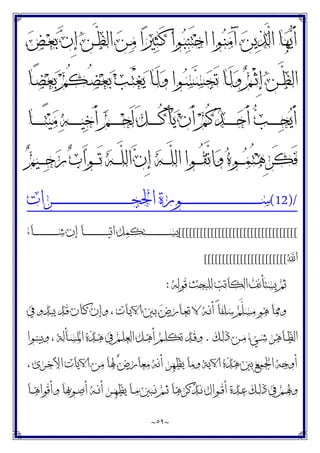 أَيُّهَا ٱلَّذِينَ ءَامَنُوا۟ ٱجْتَنِبُوا۟ كَثِيرًا مِّنَ ٱلظَّنِّ إِنَّ بَعْضَ
ٱلظَّنِّ إِثْمٌ وَلَا تَجَسَّسُوا۟ وَلَا يَغْتَب بَّعْضُكُم بَعْضًا
أَيُحِبُّ أَحَدُكُمْ أَن يَأْكُلَ لَحْمَ أَخِيهِ مَيْتًا
فَكَرِهْتُمُوهُ وَٱتَّقُوا۟ ٱللَّهَ إِنَّ ٱللَّهَ تَوَّابٌ رَّحِيمٌ
/(12) سورة الحجرات
]]]]]]]]]]]]]]]]]]]]]]]]]]]]]]]]]يستكمل اتيا إن شاء
الله]]]]]]]]]]]]]]]]]]]]]]]
ثم يستأنف الكاتب للبحث قوله :
ومما هو مسلّم سلفاً أنه لا تعارض بين الآيات ، وإن كان قد يبدو في
الظاهر شيء من ذلك . وقد تكلم أهل العلم في هذه المسألة ، وبينوا
أوجه الجمع بين هذه الآية وما يظهر أنه معارض لها من الآيات الأخرى ،
ولهم في ذلك عدة أقوال نذكرها ثم نبين ما يظهر أنه أصوبها وأقواها
~٥٩~